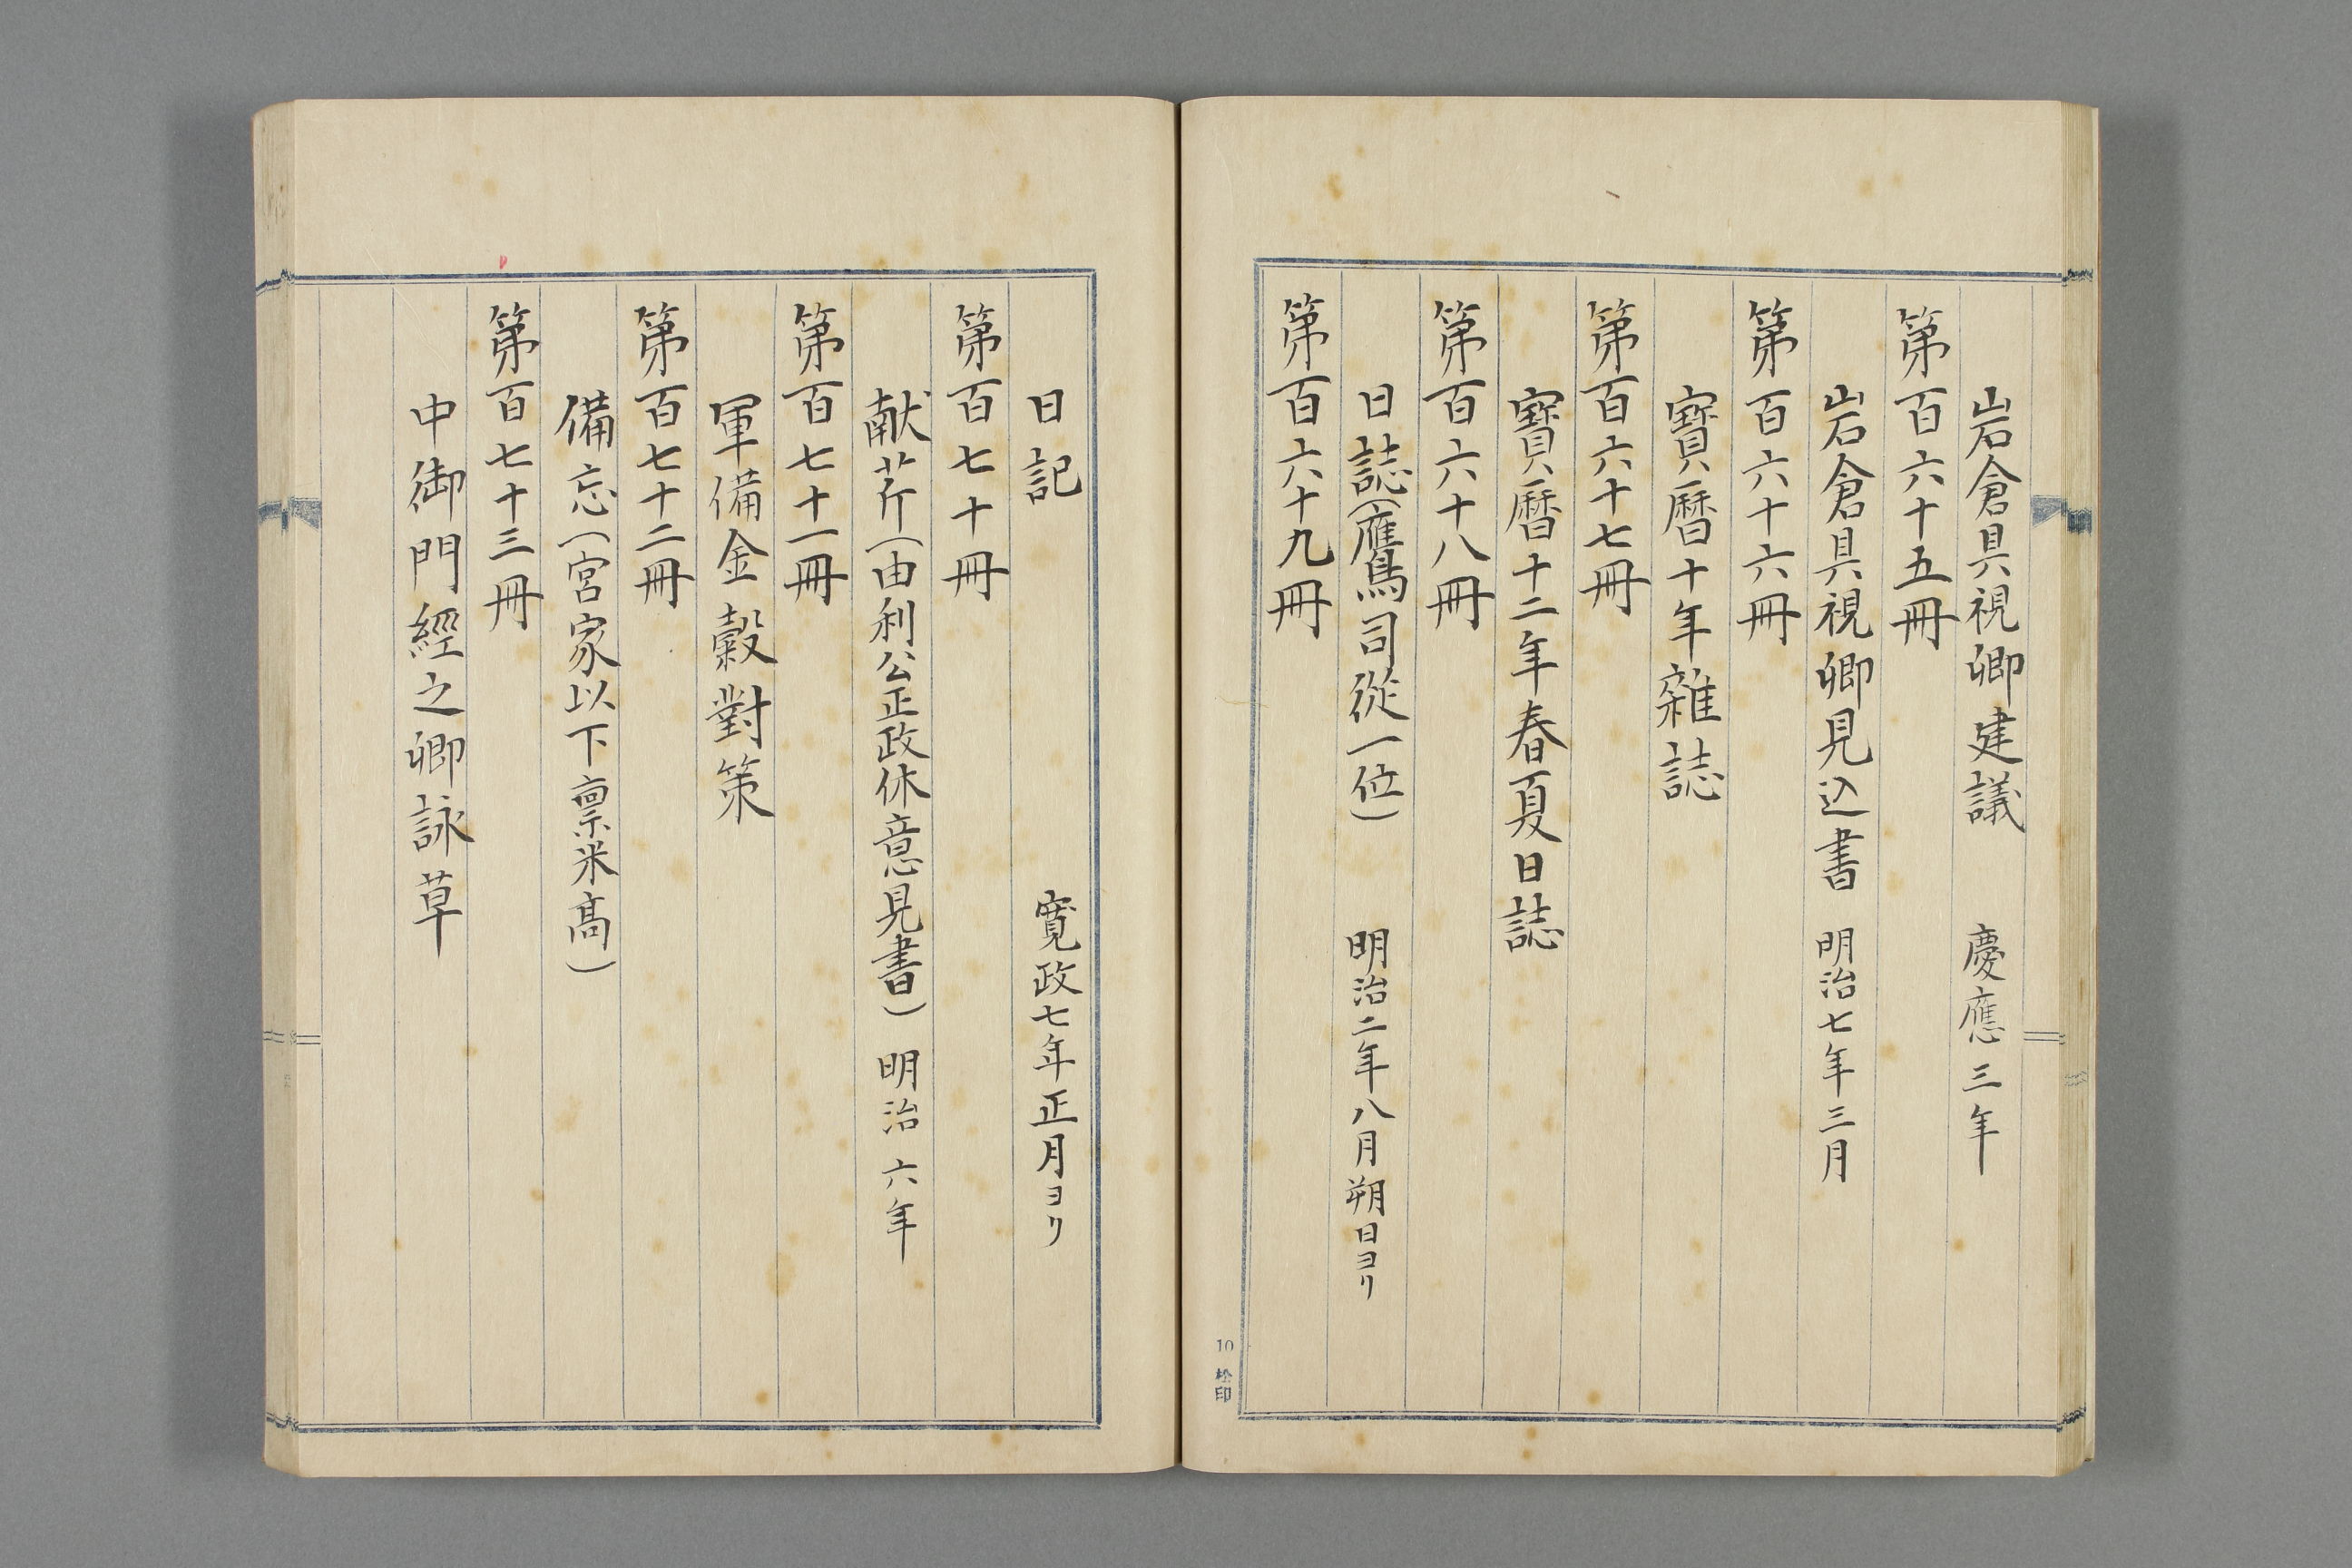 岩倉具視卿建議 慶應三年
第百六十五冊
岩倉具視卿見込書 明治七年三月
第百六十六冊
寶曆十年雜誌
第百六十七冊
寶曆十二年春夏日誌
第百六十八冊
日誌(鷹司從一位) 明治二年八月朔日ヨリ
第百六十九冊
10 松印
日記 寬政七年正月ヨリ
第百七十冊
献芹(由利公正政休意見書) 明治六年
第百七十一冊
軍備金穀對策
第百七十二冊
備忘(宮家以下禀米高)
第百七十三冊
中御門經之卿詠草